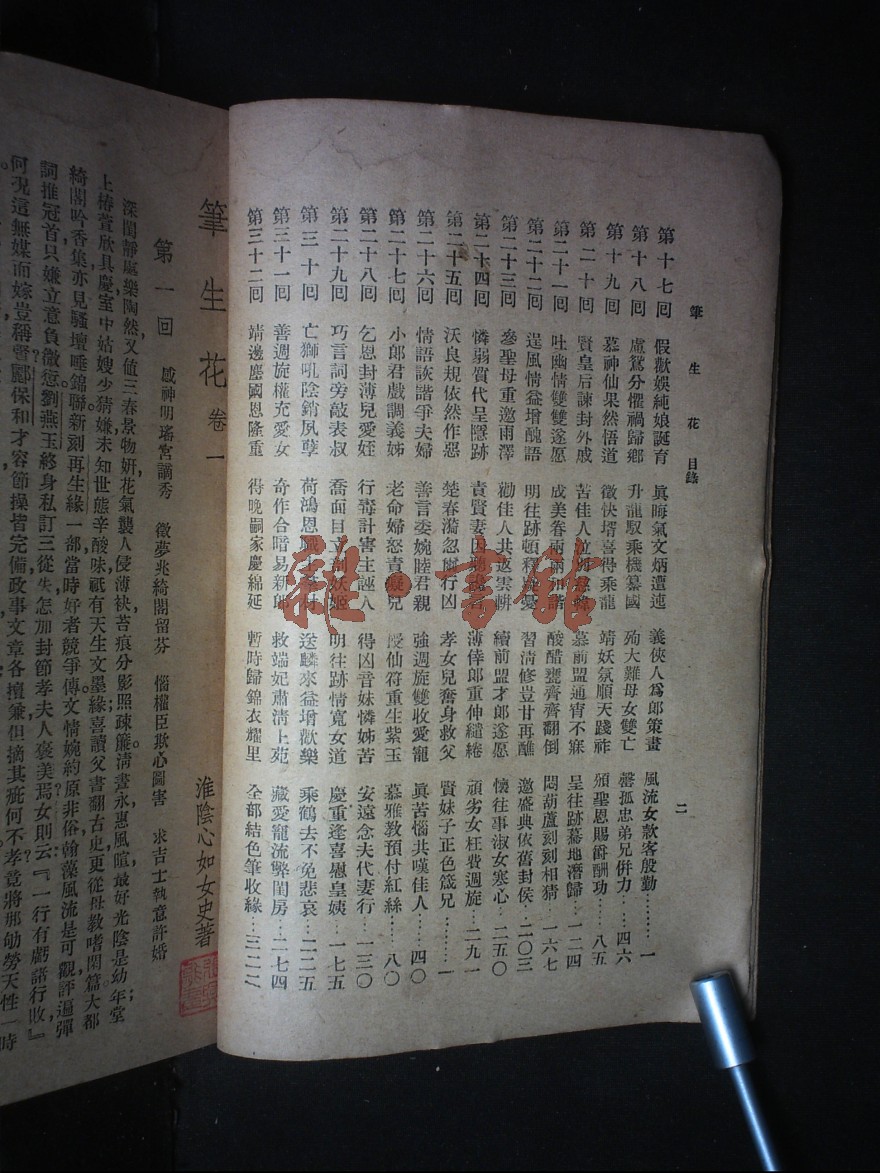 筆生花 目錄
二
第十七回 假歡娛純娘誕育 真晦氣文炳遭迍 義俠人為郎策畫 風流女款客殷勤………一
第十八回 盧鴛分懼禍歸鄉 升龍馭乘機纂國 殉大難母女雙亡 罄孤忠弟兄併力……四六
第十九回 慕神仙果然悟道 徵快壻喜得乘龍 靖妖氛順天踐祚 頒聖恩賜爵酬功……八五
第二十回 賢皇后諫封外戚 苦佳人 慕前盟通宵不寐 呈往跡驀地潛歸……一二四
第二十一回 吐幽情雙雙遂愿 成美眷兩兩和諧 酸醋甕齊齊翻倒 悶葫蘆刻刻相猜……一六七
第二十二回 逞風情益增醜語 明往跡頓釋 愛 習清修豈甘再醮 邀盛典依舊封侯……二〇三
第二十三回 參聖母重邀雨澤 勸佳人共返雲軿 續前盟才郎遂愿 懷往事淑女寒心……二五〇
第二十四回 憐弱質代呈隱跡 責賢妻因 薄倖郎重伸繾綣 頑劣女枉費週旋……二九一
第二十五回 沃良規依然作惡 楚春漪忽爾行凶 孝女兒奮身救父 賢妹子正色箴兄……一
第二十六回 情語詼諧爭夫婦 善言委婉睦君親 強週旋雙收愛寵 真苦惱共嘆佳人……四〇
第二十七回 小郎君戲調義姊 老命婦怒責癡兄 授仙符重生紫玉 慕雅教預付紅絲……八〇
第二十八回 乞恩封薄兒愛姪 行毒計害主誣人 得凶音妹憐姊苦 安遠念夫代妻行……一三〇
第二十九回 巧言詞旁敲表叔 喬面目立 妖姬 明往跡情寬女道 慶重逢喜慰皇姨……一七五
第三十回 亡獅吼陰銷夙孽 荷鴻恩職 材 送麟來益增歡樂 乘鶴去不免悲哀……二二五
第三十一回 善週旋權充愛女 奇作合暗易新郎 救端妃肅清上苑 藏愛寵流弊閨房……二七四
第三十二回 靖邊塵國恩隆重 得晚嗣家慶綿延 暫時歸錦衣耀里 全部結色筆收緣……三二二
雜·書館
筆生花 卷一
淮陰心如女史著
第一回 感神明瑤宮謫秀 徵夢兆綺閣留芬 惱權臣欺心圖害 求吉士執意許婚
深閨靜處樂陶然，又值三春景物妍。花氣襲人侵薄袂，苔痕分影照疎簾。清晝永，惠風暄，最好光陰是幼年。堂
上椿萱欣具慶，室中姑嫂少猜嫌。未知世態辛酸味，祇有天生文墨緣。喜讀父書翻古史，更從母教嗜閑篇。大都
綺閣吟香集，亦見騷壇唾錦聯。新刻再生緣一部，當時好者競爭傳。文情婉約原非俗，翰藻風流是可觀。評遍彈
詞推冠首，只嫌立意負微愆。劉燕玉終身私訂三從失，怎加封節孝夫人褒美焉？女則云：『一行有虧諸行敗』，
何況這無媒而嫁豈稱賢？酈保和才容節操皆完備，政事文章各擅兼。但摘其疵何不孝，竟將那劬勞天性一時